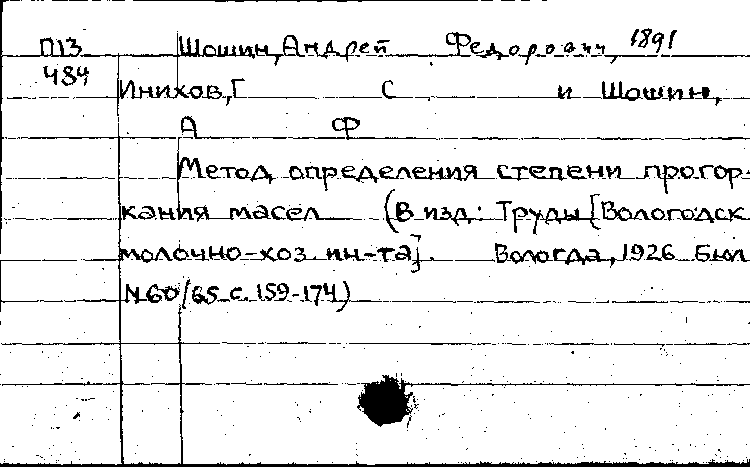 П13 Шошин, Андрей Федорович, 1891
484
Инихов, Г С и Шошин,
А Ф
Метод определения степени прогор-
кания масел (В изд: Труды [Вологодск
молочно-хоз. ин-та]. Вологда, 1926 Бюл
N 60/65 с. 159-174)